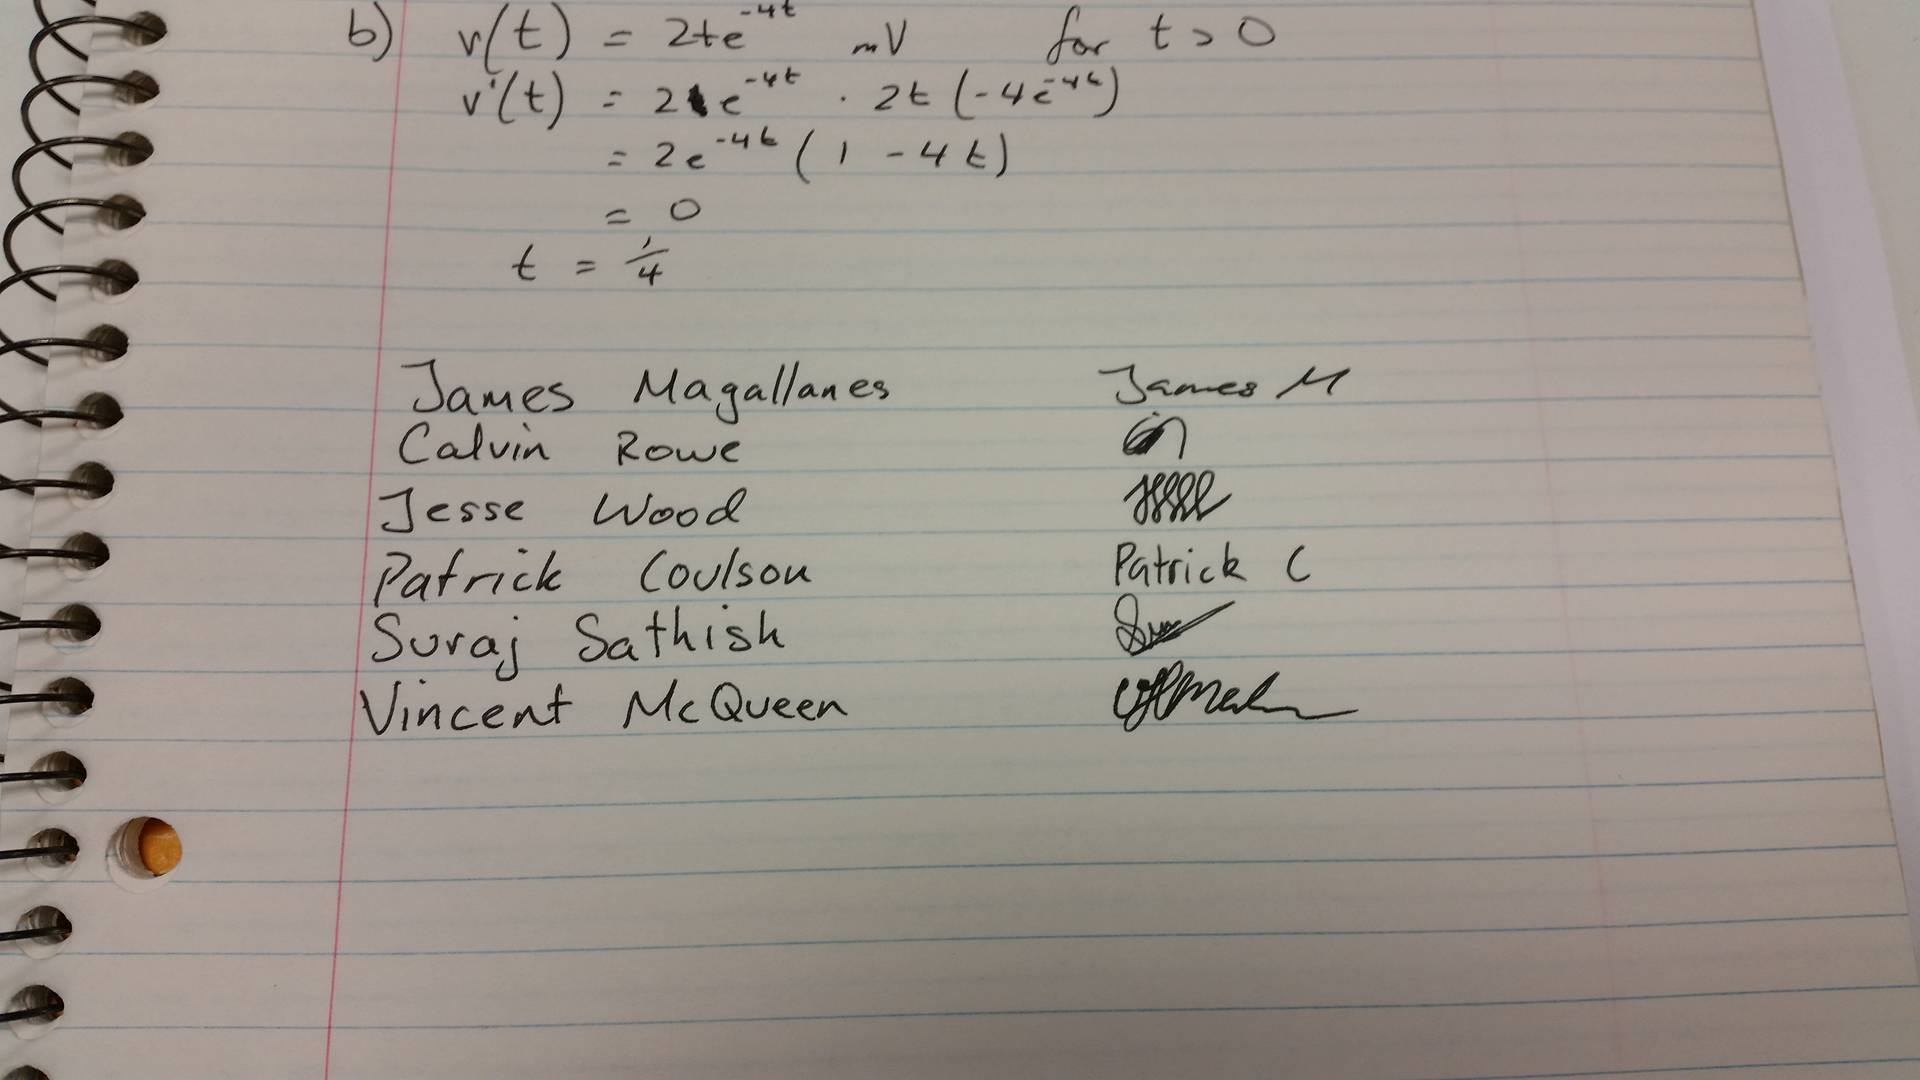 b) v(t) = 2te^-4t mV for t > 0
v'(t) = 2e^-4t · 2t (-4e^-4t)
= 2e^-4t (1 - 4t)
= 0
t = 1/4
James Magallanes James M
Calvin Rowe
Jesse Wood
Patrick Coulson Patrick C
Suraj Sathish
Vincent McQueen